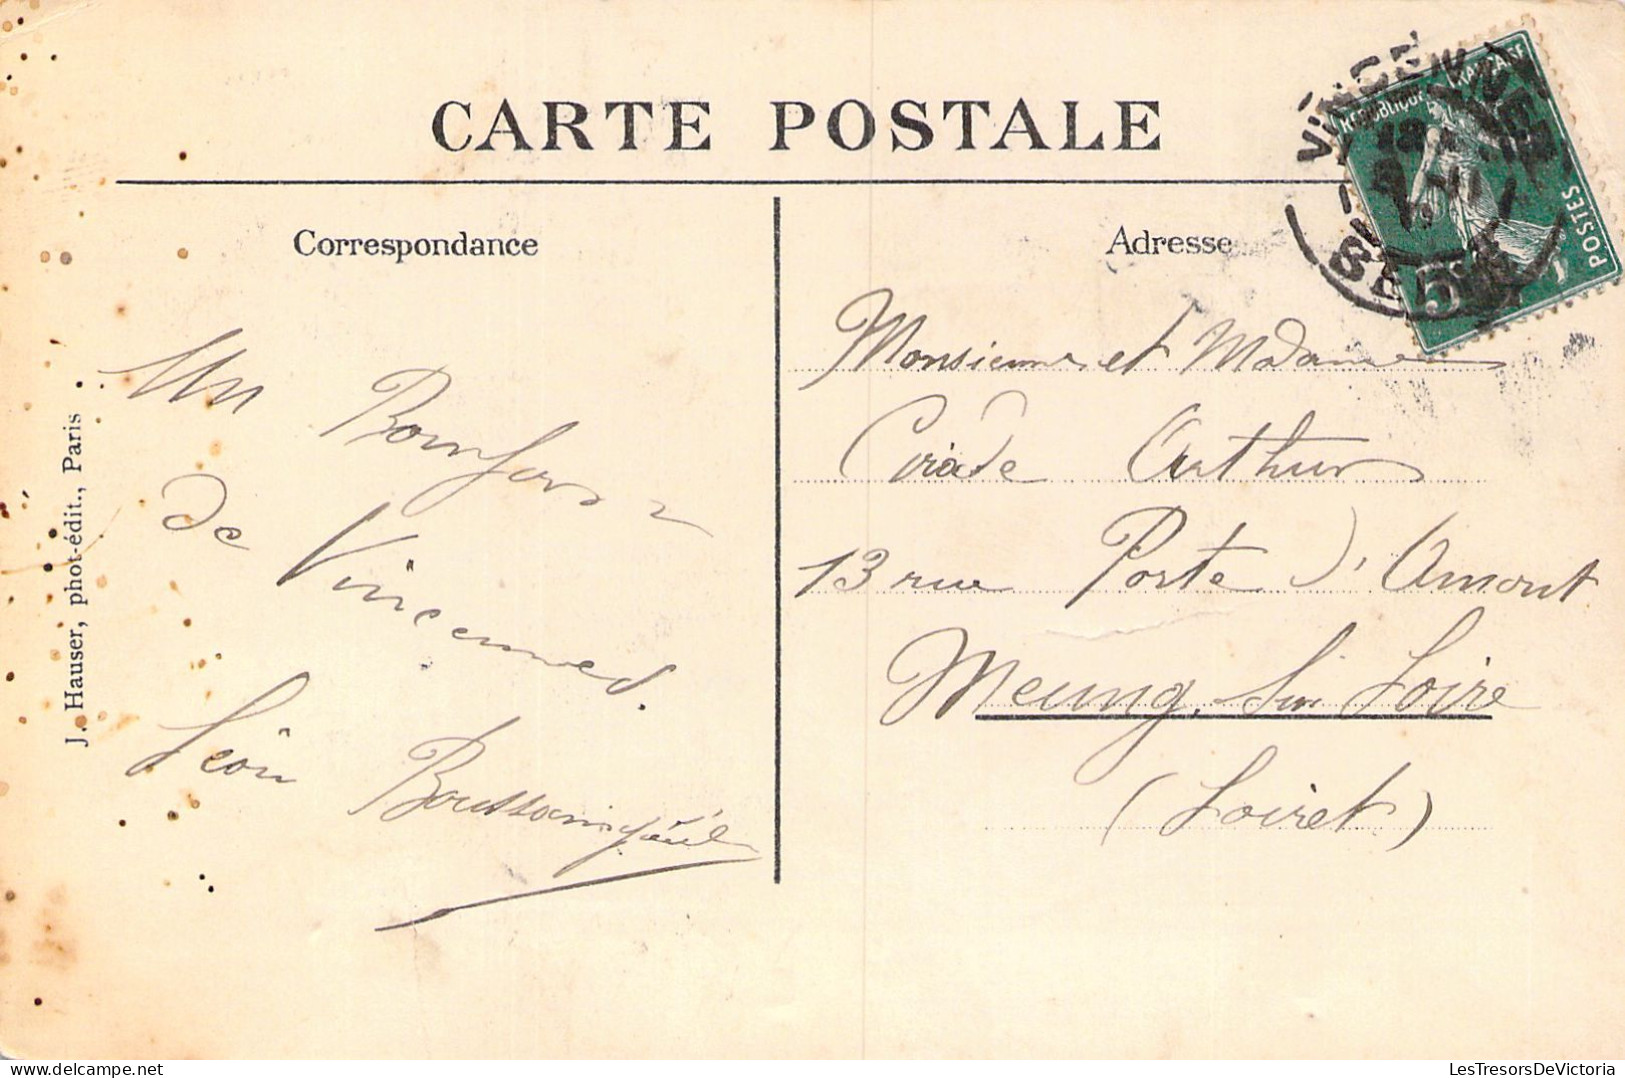 CARTE POSTALE
Correspondance
Un Bonjour
de Vincennes.
Léon Boussaingault
J. Hauser, phot-édit., Paris
Adresse
Monsieur et Madame
Cirade Arthur
13 rue Porte d'Amont
Meung sur Loire
(Loiret)
VINCENNES
SEINE
REPUBLIQUE FRANÇAISE
POSTES
5
LesTresorsDeVictoria